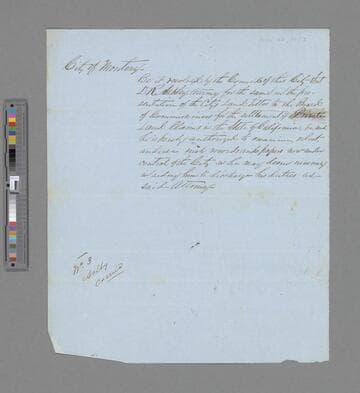 City of Monterey
Be it resolved by the Council of this City that
D.R. Ashley attorney for the same in the pre-
sentation of the City Land titles to the Board
of Commissioners for the settlement of Private
Land Claims in the State of California be and
he is hereby authorized to examine
and use such records and papers now under
control of the City as he may deem necessary
to him to discharge his duties as
said Attorney
No 3
Ashley